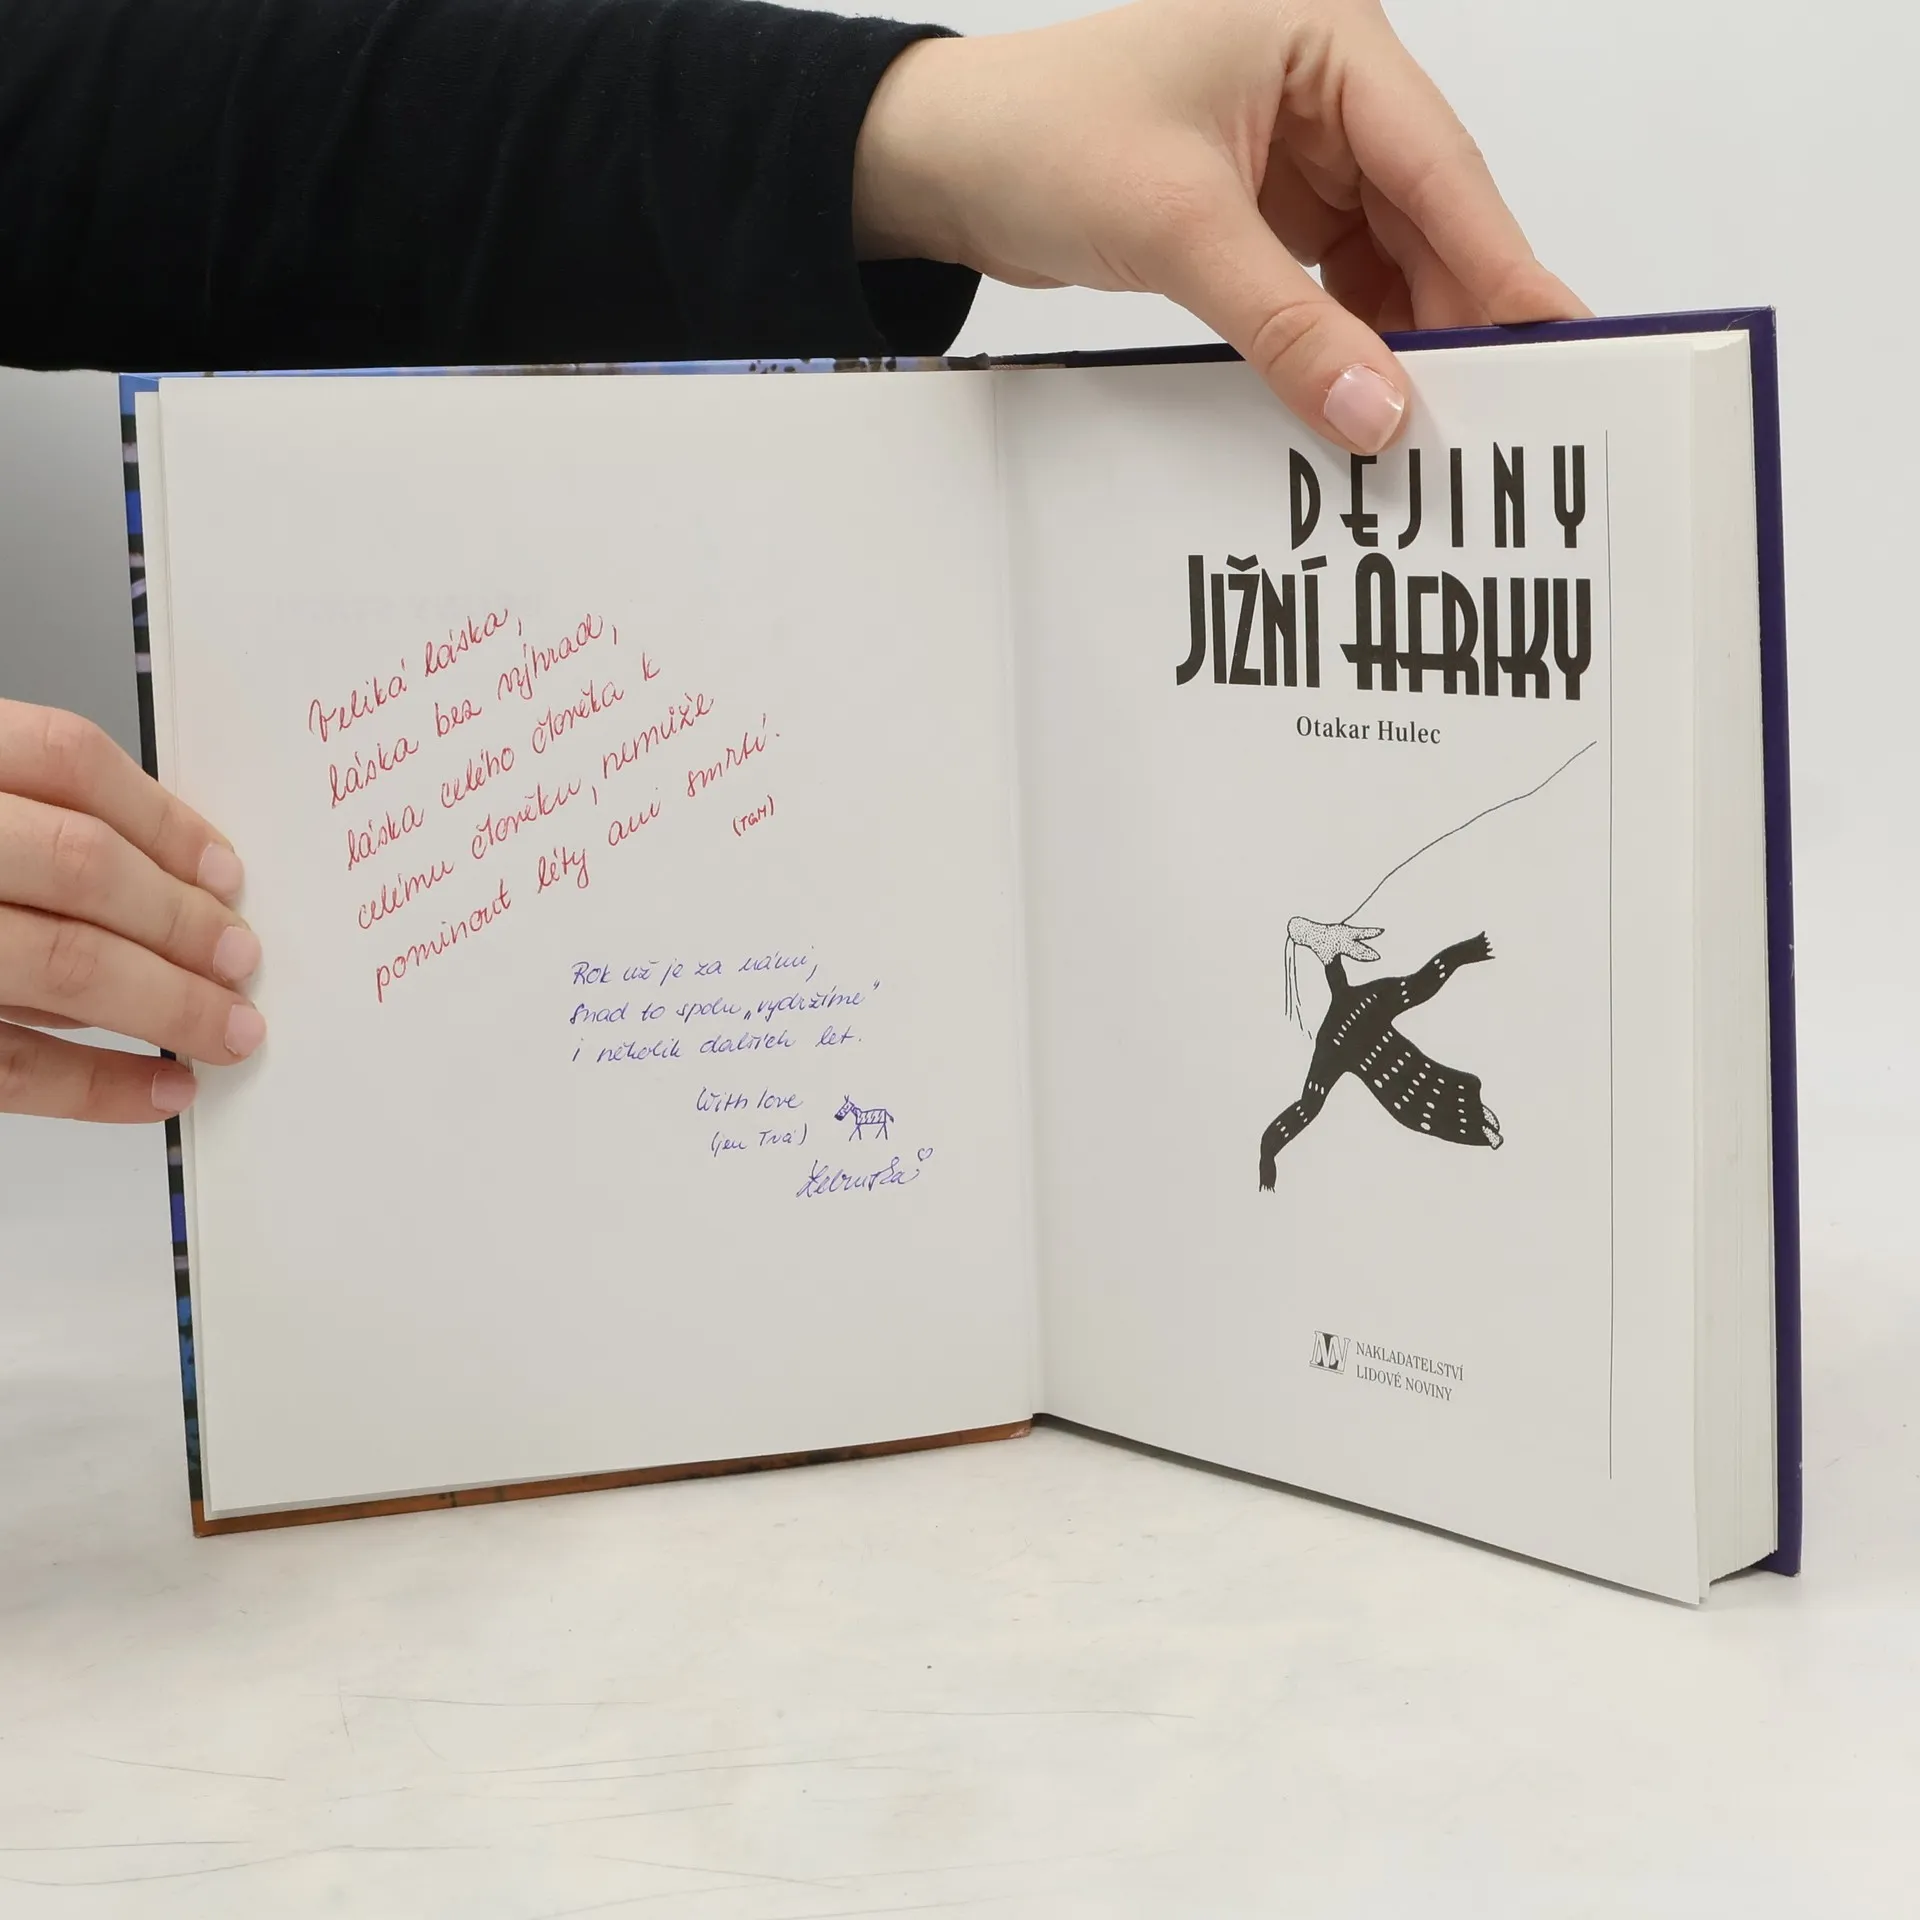 Veliká láska,
láska bez výhrad,
láska celého člověka k
celému člověku, nemůže
pominout léty ani smrtí.
(TGM)
Rok už je za námi,
snad to spolu „vydržíme"
i několik dalších let.
With love
(jen Tvá)
Žebruška
DEJINY
JIŽNÍ AFRIKY
Otakar Hulec
NLN
NAKLADATELSTVÍ
LIDOVÉ NOVINY